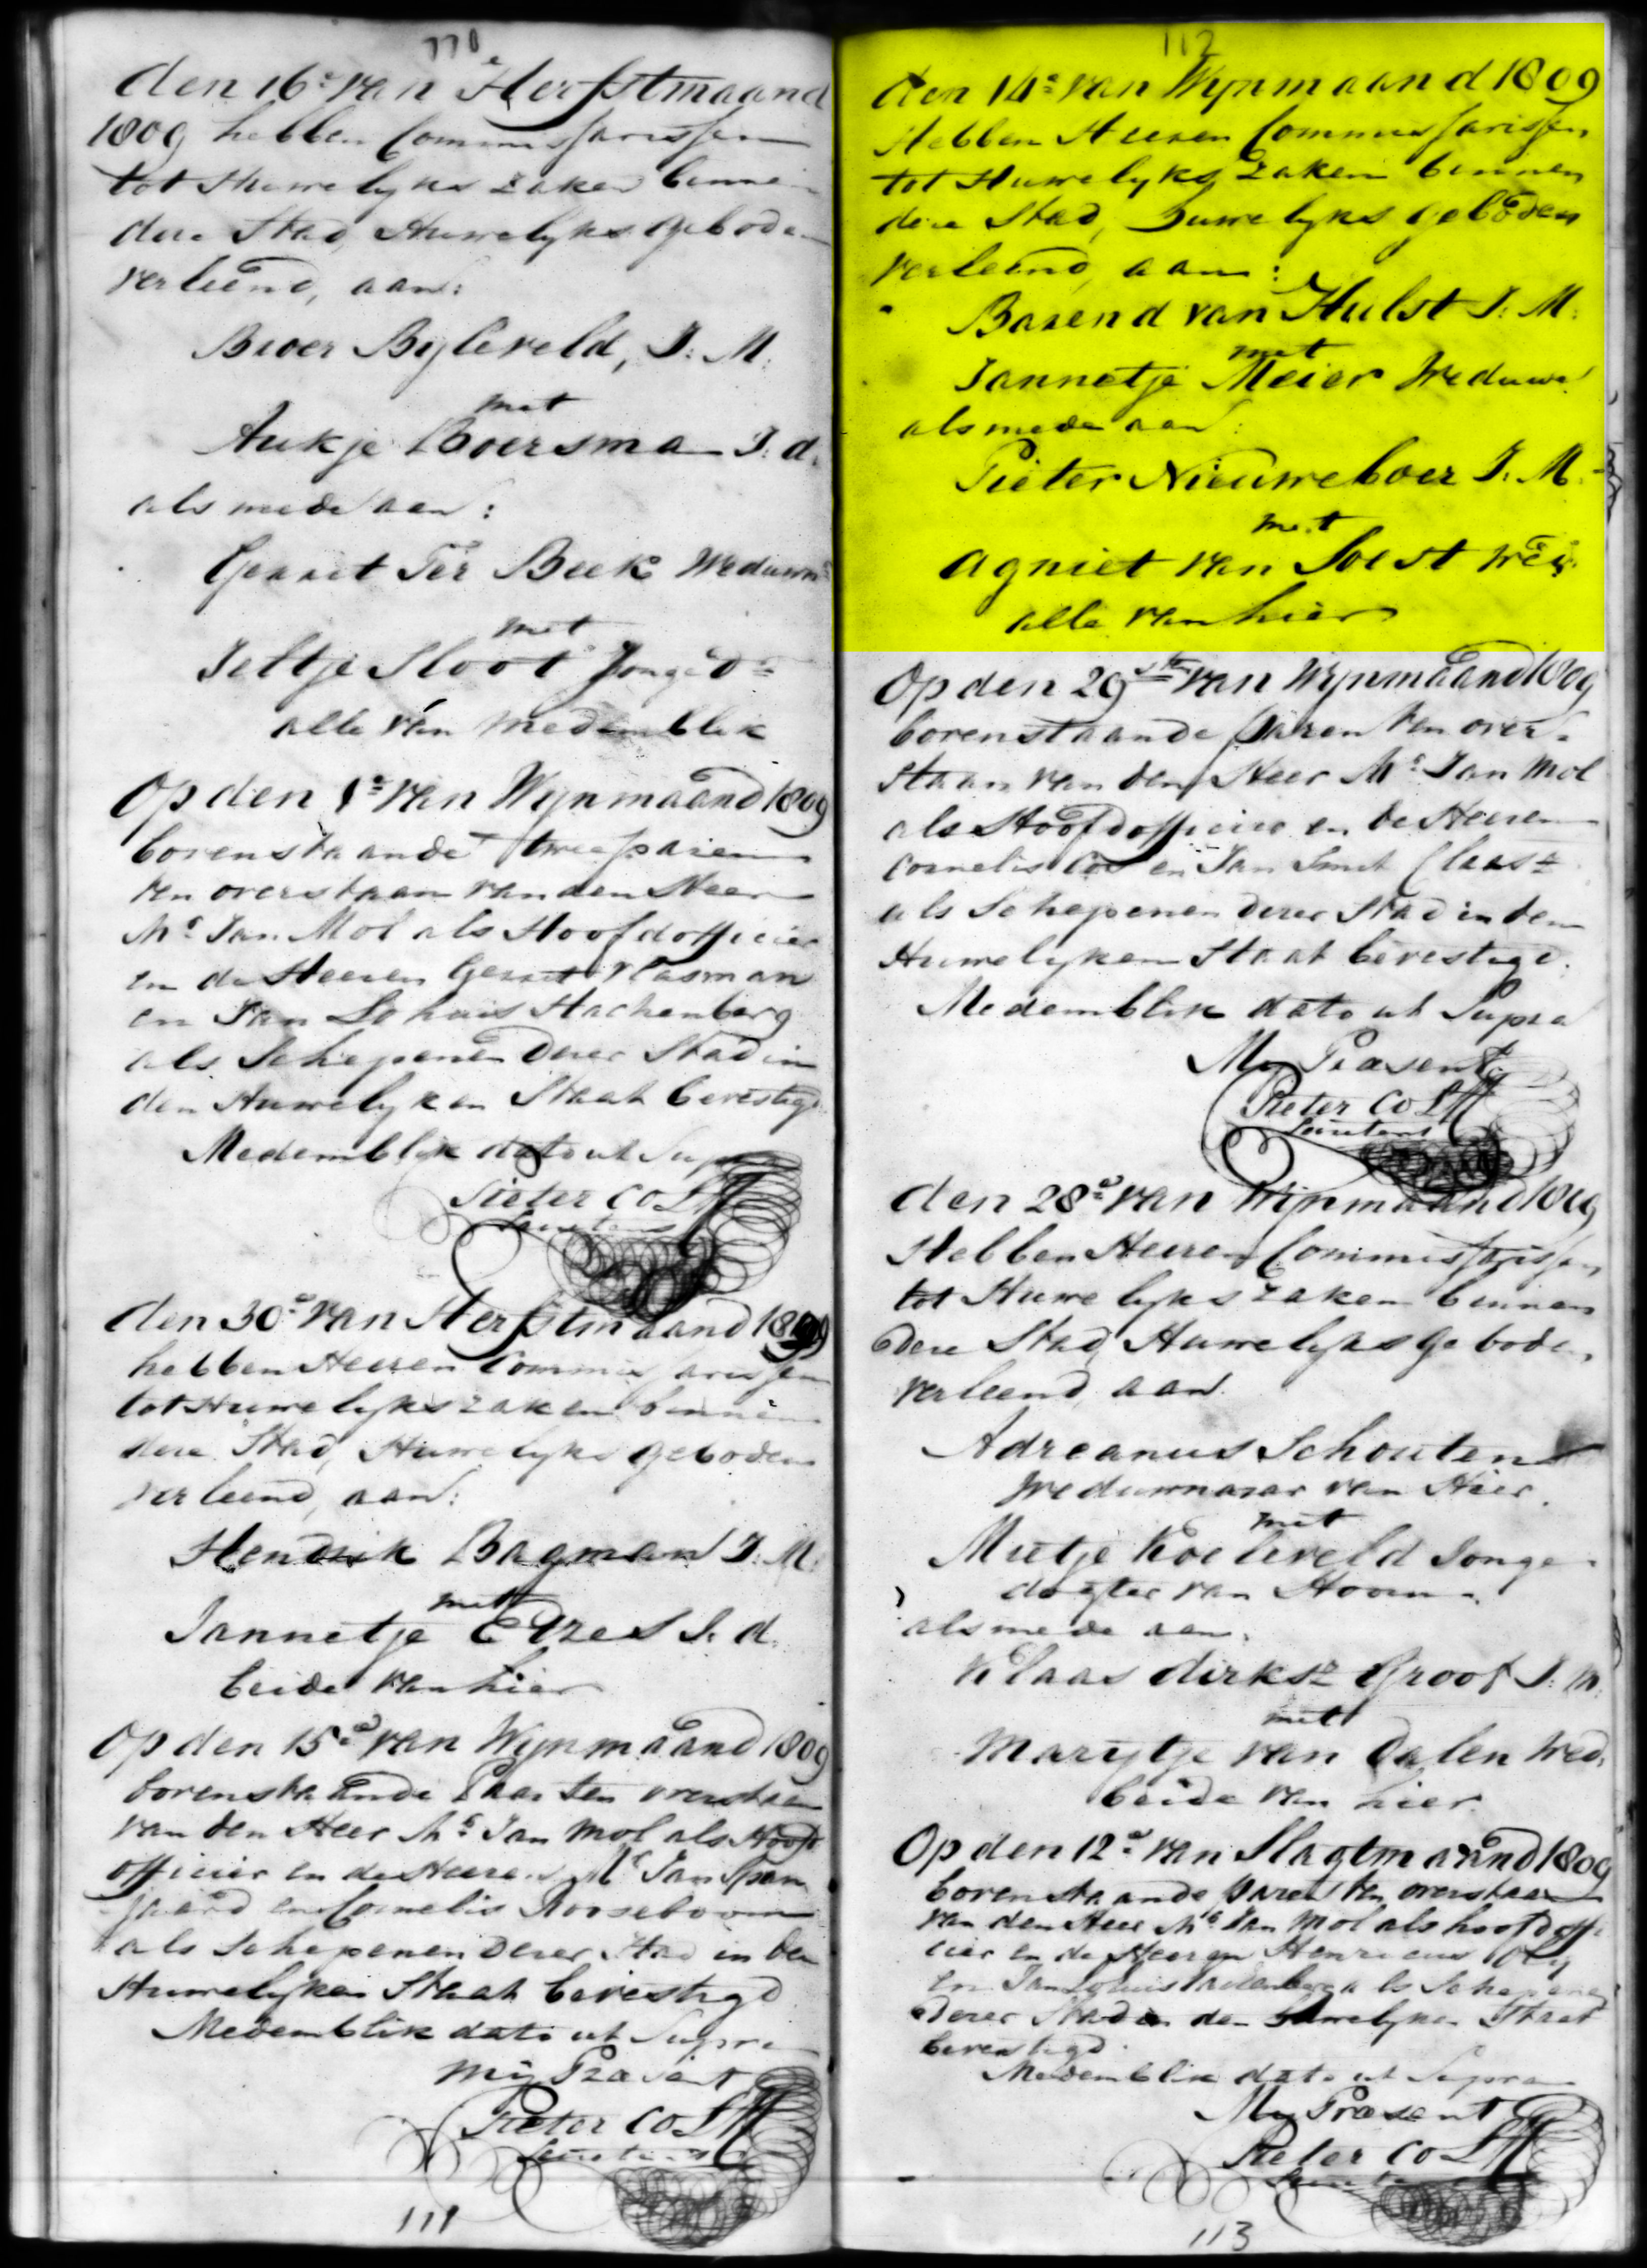 110
den 16e van Herfstmaand
1809 hebben Commissarissen
tot Huwelyks zaken binnen
dere Stad, Huwelyks geboden
verleend, aan:
Broer Byleveld, J: M:
met
Aukje Boersma J: d:
als mede aan:
Gerrit Ter Beek Weduwn
met
Jeltje Sloot Jonged
alle van Medemblik
Op den 1e van Wynmaand 1809
bovenstaande twee paren
ten overstaan van den Heer
Mr Jan Mol als Hoofdofficier
en de Heeren Gerrit Vlasman
en Jan Lohuis Hachenberg
als Schepenen Dezer Stad in
den Huwelyken Staat bevestigd
Medemblik dato ut Supra
Pieter Coll
den 30e van Herfstmaand 1809
hebben Heeren Commissarissen
tot Huwelyks zaken binnen
dere Stad, Huwelyks geboden
verleend, aan:
Hendrik Bagman J: M:
met
Jannetje Edzes J. d.
beide van hier
Op den 15e van Wynmaand 1809
bovenstaande Paar ten overstaan
van den Heer Mr Jan Mol als Hoofd
officier en de Heeren Mr Jan Span
jaard en Cornelis Rooseboom
als Schepenen Dezer Stad in den
Huwelyken Staat bevestigd
Medemblik dato ut Supra
My Präsent
Pieter Coll
111
112
den 14e van Wynmaand 1809
Hebben Heeren Commissarissen
tot Huwelyks Zaken binnen
dere Stad, Huwelyks geboden
verleend, aan:
Barend van Hulst J: M:
met
Jannetje Meier Weduwe
als mede aan:
Pieter Nieuweboer J: M:
met
Agniet van Soest Wed:
alle van hier
Op den 29sten van Wynmaand 1809
bovenstaande Paren ten over-
staan van den Heer Mr Jan Mol
als Hoofdofficier en de Heeren
Cornelis Cos en Jan Smit Claasz
als Schepenen Dezer Stad in den
Huwelyken Staat bevestigd.
Medemblik dato ut Supra
My Präsent
Pieter Coll
den 28e van Wynmaand 1809
Hebben Heeren Commissarissen
tot Huwelyks zaken binnen
dere Stad, Huwelyks geboden
verleend, aan.
Adreanus Schouten
Weduwnaar van Hier.
met
Mietje Koeleveld Jonge
dogter van Hoorn.
als mede aan.
Klaas dirksz Groot J: M:
met
Marytje van Dalen Wed:
beide van hier.
Op den 12e van Slagtmaand 1809
bovenstaande paren ten overstaan
van den Heer Mr Jan Mol als hoofdoffi
cier en de Heeren Henricus
en Jan Lohuis Hachenberg als Schepenen
Dezer Stad in den Huwelyken Staat
bevestigd.
Medemblik dato ut Supra
My Präsent
Pieter Coll
113